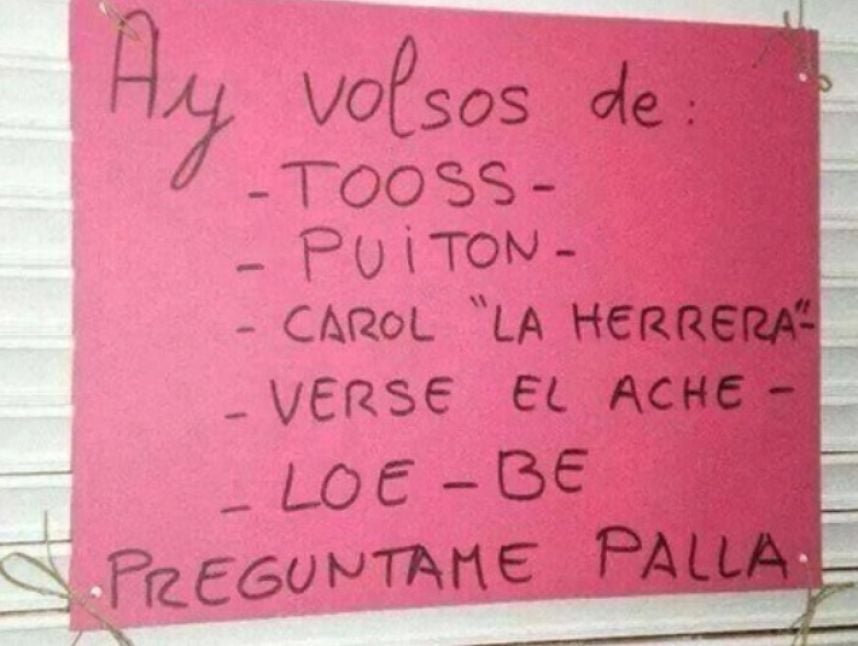 Ay volsos de:
-TOOSS-
- PUiTON-
- CAROL "LA HERRERA"-
- VERSE EL ACHE -
- LOE - BE
PREGUNTAME PALLA